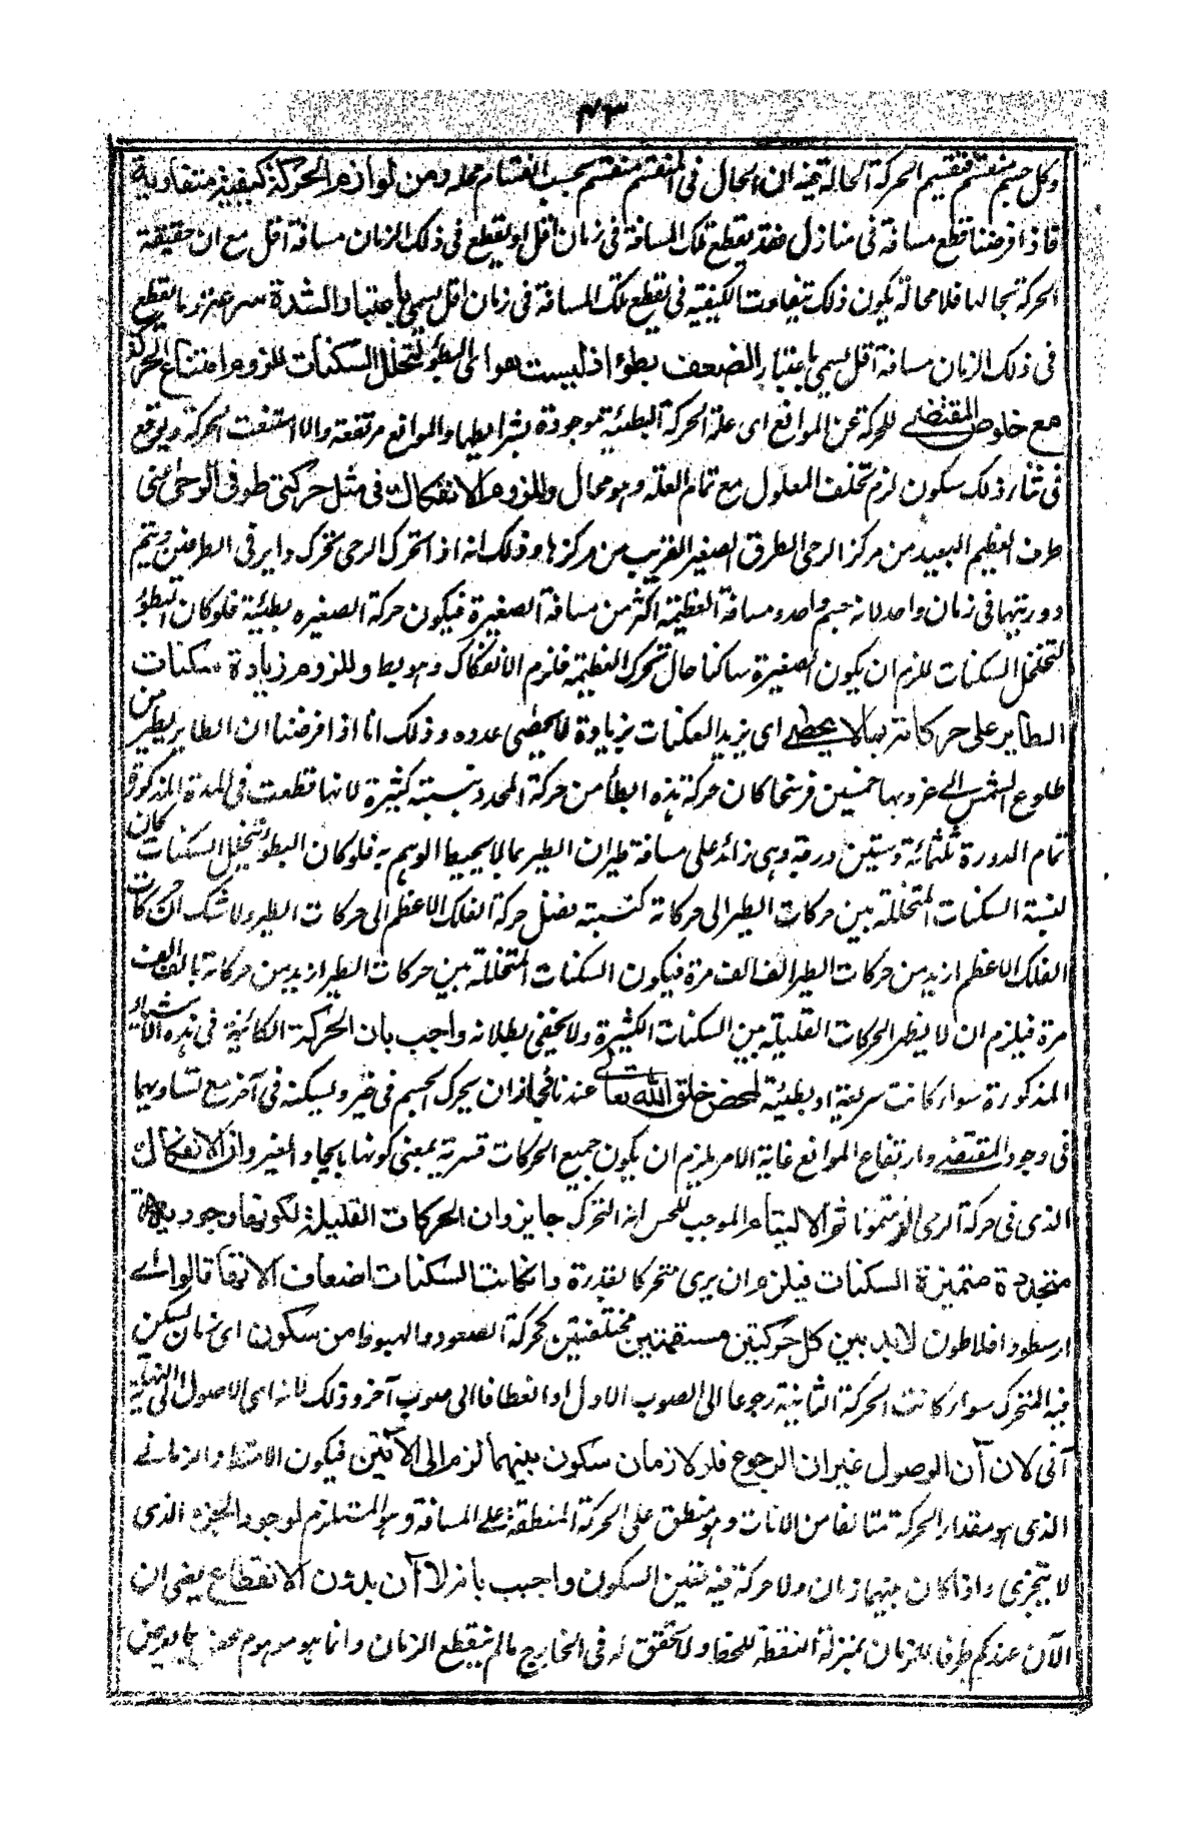 ٤٣
وكل جسم منقسم فتنقسم الحركة الحالة فيه لان الحال فى المنقسم منقسم بحسب انقسام محله ومن لوازم الحركة كيفية متفاوتة
فاذا فرضنا قطع مسافة فى منازل فقد يقطع تلك المسافة فى زمان اقل او يقطع فى ذلك الزمان مسافة اقل مع ان حقيقة
الحركة بحالها فلا محالة يكون ذلك بتفاوت الكيفية فى يقطع تلك المسافة فى زمان اقل يسمى باعتبار الشدة سرعة وما يقطع
فى ذلك الزمان مسافة اقل يسمى باعتبار الضعف بطؤا اذ ليست هو اى البطؤ لتخلل السكنات للزوم امتناع الحركة
مع خلوص المقتضى للحركة عن الموانع اى علة الحركة البطيئة موجودة بشرايطها والموانع مرتفعة والا امتنعت الحركة ويوقع
فى اثناء ذلك سكون لزم تخلف المعلول مع تمام العلة وهو محال وللزوم الانفكاك فى مثل حركتى طوفى الرحى اعنى
طرف العظيم البعيد من مركز الرحى الطرق الصغير القريب من مركزها وذلك انه اذا تحرك الرحى تحرك دايرفى الطرفين ويتم
دورتيهما فى زمان واحد لانه جسم واحد ومسافة العظيمة اكثر من مسافة الصغيرة فيكون حركة الصغيره بطيئة فلو كان البطؤ
لتخلل السكنات للزم ان يكون الصغيرة ساكنا حال تحرك العظيمة فلزم الانفكاك وهو بط وللزوم زيادة سكنات
الطاير على حركاته بما لا يحصى اى يزيد السكنات بزيادة لا يحصى عدده وذلك انا اذا فرضنا ان الطاير يطير من
طلوع الشمس الى غروبها خمسين فرسخا كان حركة هذه ابطأ من حركة المحدد بنسبته كثيرة لانها قطعت فى المدة المذكورة
تمام الدورة ثلثمائة وستين درجة وهى زائد على مسافة طيران الطير بما لا يحيط الوهم به فلو كان البطؤ بتخلل السكنات كان
نسبة السكنات المتخللة بين حركات الطير الى حركاته كنسبته فضل حركة الفلك الاعظم الى حركات الطير ولا شك ان حركات
الفلك الاعظم ازيد من حركات الطير الف الف مرة فيكون السكنات المتخللة بين حركات الطير ازيد من حركاته بالف الف
مرة فيلزم ان لا يظهر الحركات القليلة بين السكنات الكثيرة ولا يخفى بطلانه واجب بان الحركة الكائنة فى هذه الاشياء
المذكورة سواء كانت سريعة او بطيئة لمحض خلق الله تعالى عندنا فجاز ان يحرك الجسم فى حيز ويسكنه فى آخر مع تساويهما
فى وجود المقتضى وارتفاع الموانع غاية الامر يلزم ان يكون جميع الحركات قسرية بمعنى كونها بايجاد الغير وان الانفكاك
الذى فى حركة الرحى الالتيام الموجب للحس انه التحرك جايز وان الحركات القليلة لكونها وجودية
متجددة متميزة السكنات فيلزم ان يرى متحركا لقدرة وانكانت السكنات اضعاف الاف قالوا اى
ارسطو وافلاطون لابد بين كل حركتين مستقيمتين مختلفتين كحركة الصعود والهبوط من سكون اى زمان يسكن
فيه المتحرك سواء كانت الحركة الثانية رجوعا الى الصوب الاول او انعطافا الى صوب آخر وذلك لانه اى الاصول الى النهاية
آنى لان آن الوصول غير ان الرجوع فلو لا زمان سكون بينهما لزم الى الآنين فيكون الامتداد الزمانى
الذى هو مقدار الحركة متالفا من الانات وهو منطبق على الحركة المنطبقة على المسافة وهو المستلزم لوجود الجزء الذى
لا يتجزى واذا كان بينهما زمان ولا حركة فيه تعين السكون واجيب بانه لا آن بدون الانقطاع يعنى ان
الآن عندكم طرف للزمان بمنزلة النقطة للخط ولا تحقق له فى الخارج مالم ينقطع الزمان وانما هو موهوم محض بما يعرض